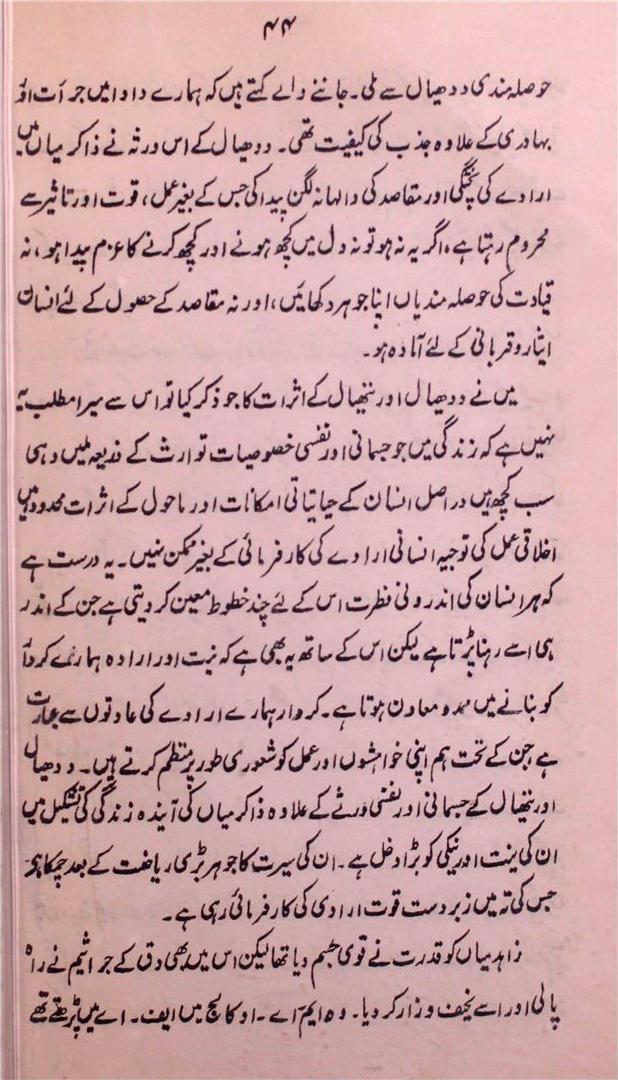 ۴۴
حوصلہ مندی ددھیال سے ملی۔ جاننے والے کہتے ہیں کہ ہمارے دادا میں جرأت اور
بہادری کے علاوہ جذب کی کیفیت تھی۔ ددھیال کے اس ورثہ نے ذاکر میاں میں
ارادے کی پختگی اور مقاصد کی والہانہ لگن پیدا کی جس کے بغیر عمل، قوت اور تاثیر سے
محروم رہتا ہے، اگر یہ نہ ہو تو نہ دل میں کچھ ہونے اور کچھ کرنے کا عزم پیدا ہو، نہ
قیادت کی حوصلہ مندیاں اپنا جوہر دکھائیں، اور نہ مقاصد کے حصول کے لئے انسان
ایثار و قربانی کے لئے آمادہ ہو۔
میں نے ددھیال اور ننھیال کے اثرات کا جو ذکر کیا تو اس سے میرا مطلب یہ
نہیں ہے کہ زندگی میں جو جسمانی اور نفسی خصوصیات توارث کے ذریعہ ملیں وہی
سب کچھ ہیں دراصل انسان کے حیاتیاتی امکانات اور ماحول کے اثرات محدود ہیں
اخلاقی عمل کی توجیہ انسانی ارادے کی کارفرمائی کے بغیر ممکن نہیں۔ یہ درست ہے
کہ ہر انسان کی اندرونی فطرت اس کے لئے چند خطوط معین کر دیتی ہے جن کے اندر
ہی اسے رہنا پڑتا ہے لیکن اس کے ساتھ یہ بھی ہے کہ نیت اور ارادہ ہمارے کردار
کو بنانے میں ممد و معاون ہوتا ہے۔ کردار ہمارے ارادے کی عادتوں سے عبارت
ہے جن کے تحت ہم اپنی خواہشوں اور عمل کو شعوری طور پر منظم کرتے ہیں۔ ددھیال
اور ننھیال کے جسمانی اور نفسی ورثے کے علاوہ ذاکر میاں کی آیندہ زندگی کی تشکیل میں
ان کی نیت اور نیکی کو بڑا دخل ہے۔ ان کی سیرت کا جوہر بڑی ریاضت کے بعد چمکا ہے
جس کی تہ میں زبردست قوت ارادی کی کارفرمائی رہی ہے۔
زاہد میاں کو قدرت نے قوی جسم دیا تھا لیکن اس میں بھی دق کے جراثیم نے راہ
پالی اور اسے نحیف و زار کر دیا۔ وہ ایم۔ اے۔ او کالج میں ایف۔ اے میں پڑھتے تھے